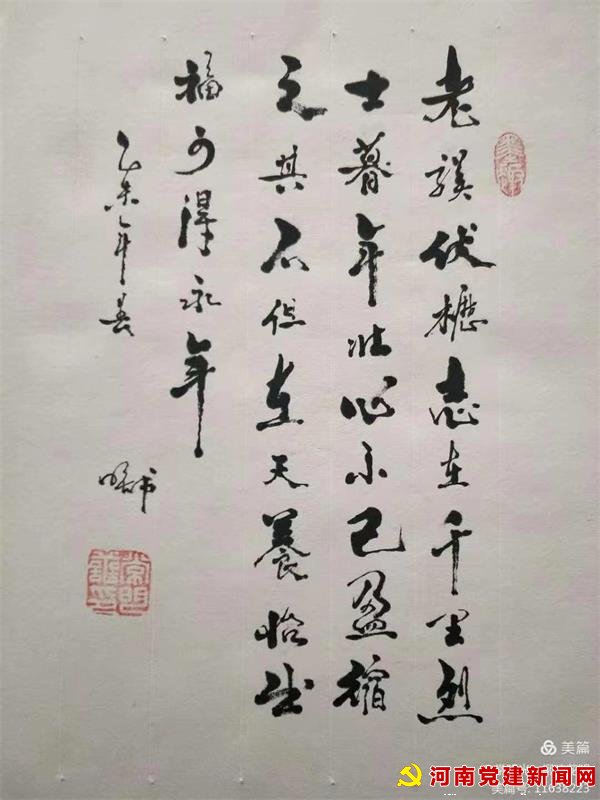 老骥伏櫪志在千里烈
士暮年壮心不已盈縮
之其不但在天養怡之
福可得永年
乙未年春
美篇
河南党建新闻网
美篇号: 11038223